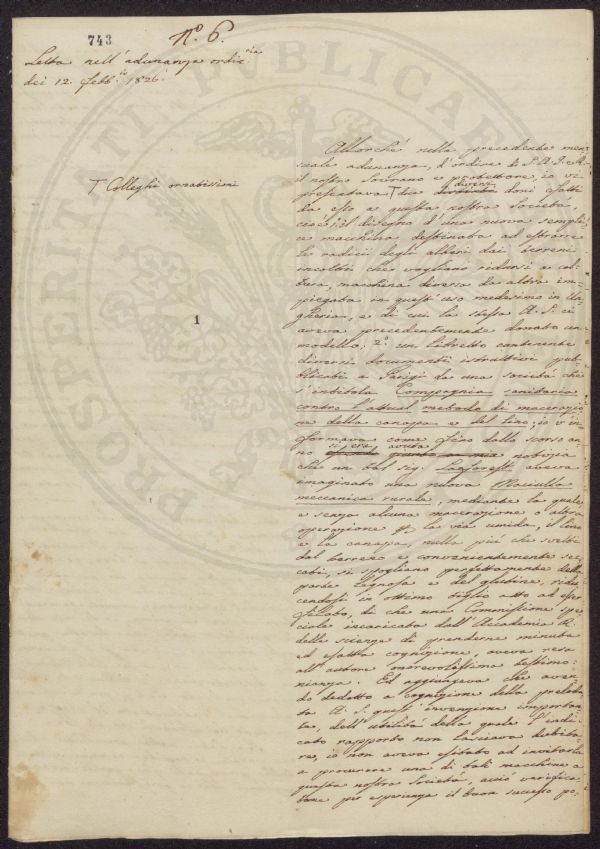 743
N.º 6.
Letta nell'adunanza ordin.ria
dei 12. Febb.º 1826.
T Colleghi ornatissimi
1
Allorchè nella precedente men
suale adunanza, d'ordine di S. A. I. e R.
il nostro Sovrano e protettore, io vi
presentava T due diversi doni fatti
da esso a questa nostra Società,
cioè: il disegno d'una nuova sempli
ce macchina destinata ad estrarre
le radici degli alberi dai terreni
incolti che vogliano ridursi a col
tura, macchina diversa da altra im
piegata in quest'uso medesimo in Un
gheria, e di cui la stessa A. S. ci
aveva precedentemente donato un
modello; 2.º un libretto contenente
diversi documenti istruttivi pub
blicati a Parigi da una società che
s'intitola Compagnia sanitaria
contro l'attual metodo di macerazio
ne della canapa e del lino; io v'in
formava come fino dallo scorso an
no si era avuta notizia
che un tal sig. Laforest aveva
imaginato una nuova Maciulla
meccanica rurale, mediante la quale
e senza alcuna macerazione o altra
operazione per la via umida, il lino
e la canapa, nulla più che svelti
dal terreno e convenientemente sec
cati, si spogliano perfettamente della
parte legnosa e del glutine, ridu
cendosi in ottimo tiglio atto ad esser
filato, di che una Commissione spe
ciale incaricata dall'Accademia R.
delle scienze di prenderne minuta
ed esatta cognizione, aveva resa
all'autore onorevolissima testimo
nianza. Ed aggiungeva che aven
do dedotto a cognizione della prelo
data A. S. quest'invenzione importan
te, dell'utilità della quale l'indi
cato rapporto non lasciava dubita
re, io non aveva esitato ad invitarla
a procurare una di tali macchine a
questa nostra Società, acciò verifica
tone per esperienza il buon successo po
PROSPERITATI PUBLICAE